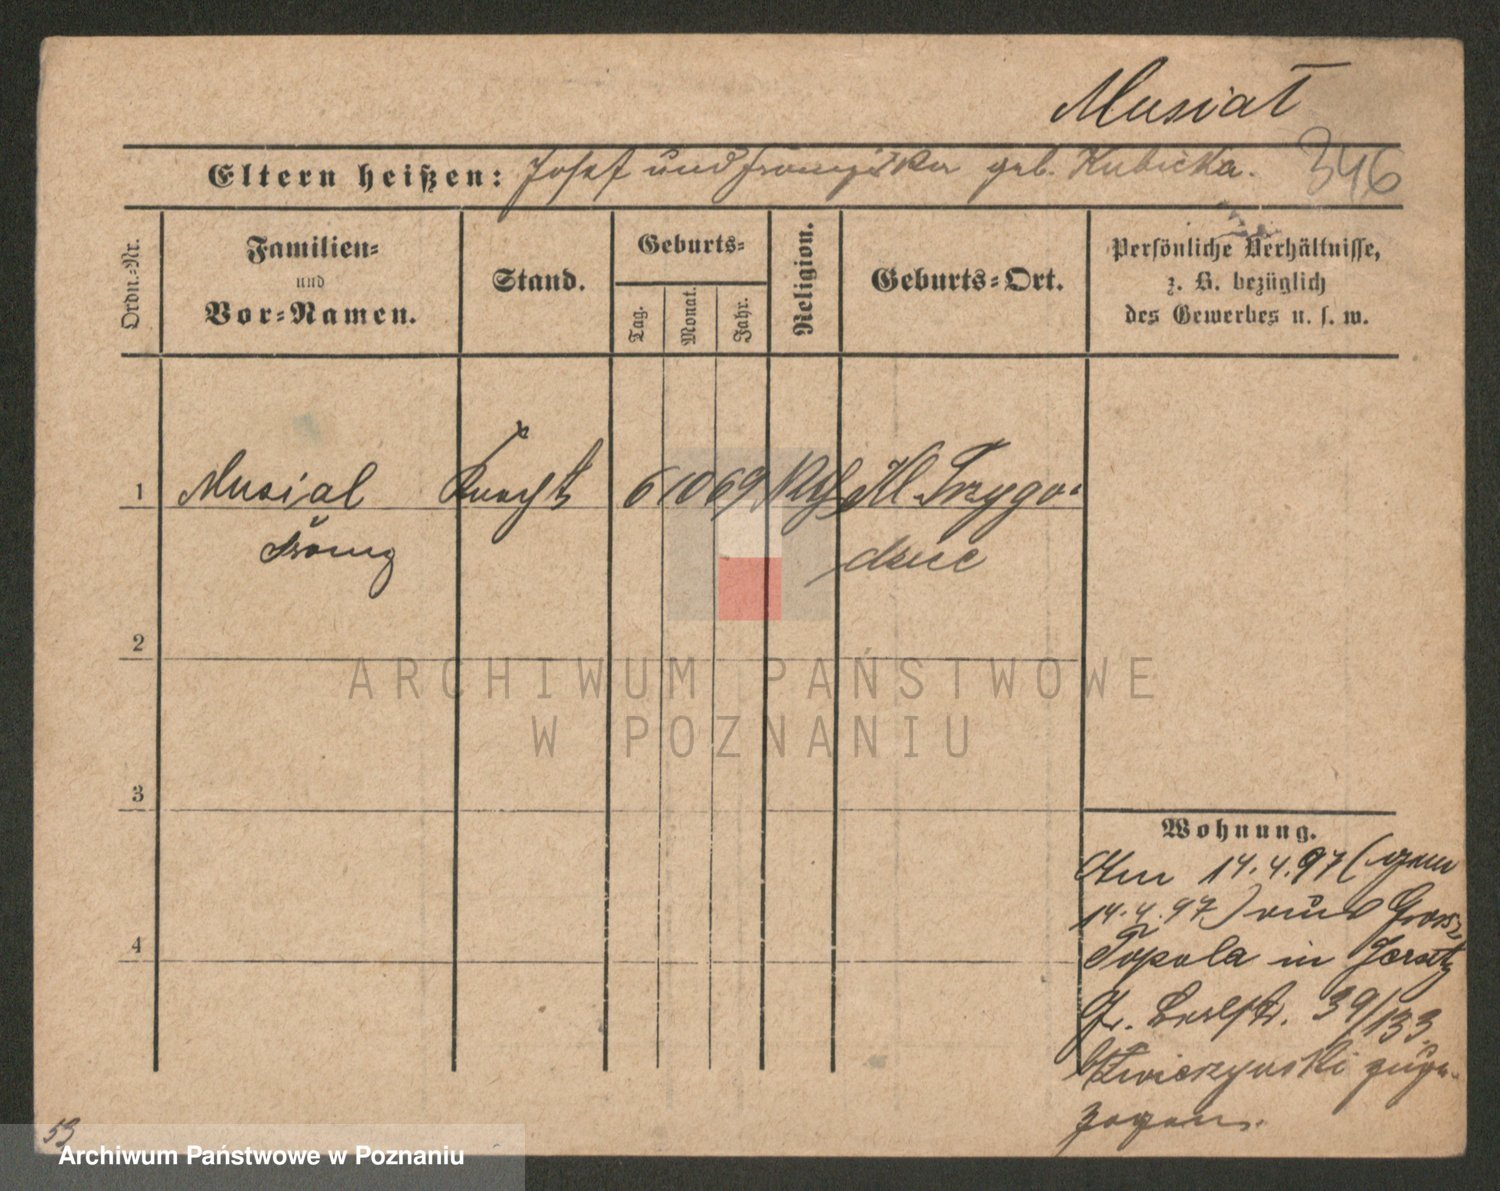 Musiał
346
Eltern heißen: Josef und Franziska geb. Kubicka.
Ordn.-Nr.
Familien-
und
Vor-Namen.
Stand.
Geburts-
Tag.
Monat.
Jahr.
Religion.
Geburts-Ort.
Persönliche Verhältnisse,
z. B. bezüglich
des Gewerbes u. s. w.
1 Musial Knecht 6 10 69 Kl. Przygo-
Franz dzice
2
3
4
Wohnung.
Am 14.4.97 (gem
14.4.97) aus Gross
Topola in Jersitz
Gr. 39/133.
zuge-
zogen.
ARCHIWUM PAŃSTWOWE
W POZNANIU
53
Archiwum Państwowe w Poznaniu